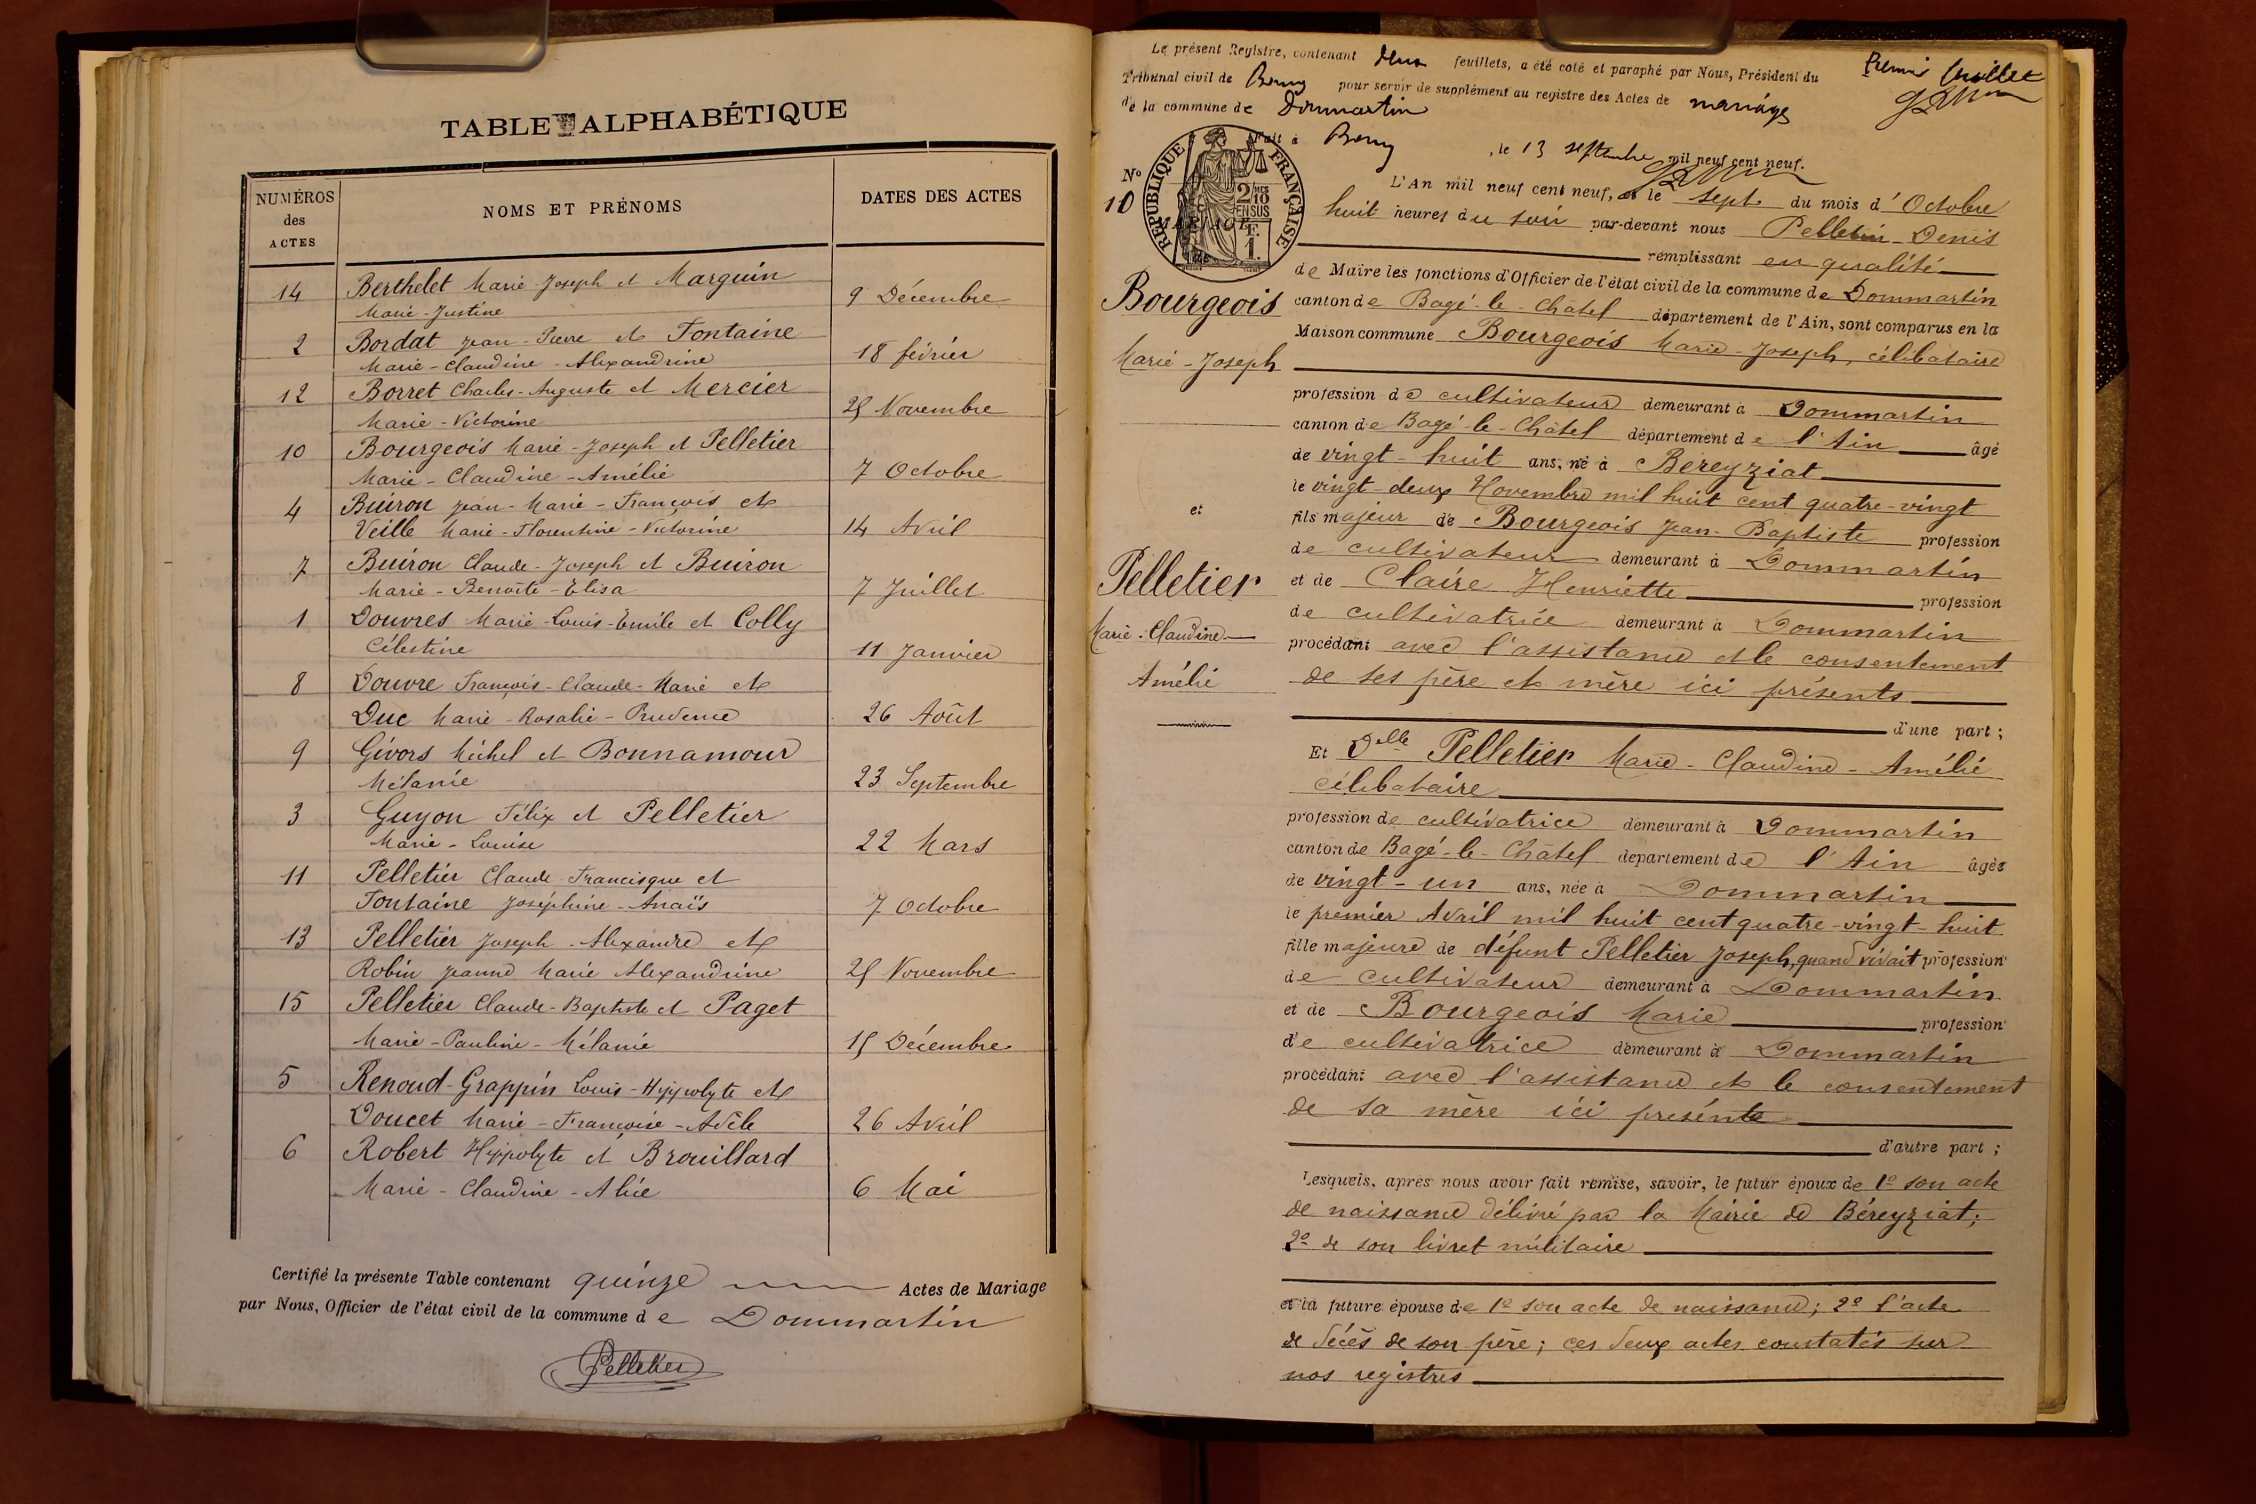 TABLE ALPHABÉTIQUE
NUMÉROS des ACTES
NOMS ET PRÉNOMS
DATES DES ACTES
14 Berthelet Marie Joseph et Marguin
Marie-Justine 9 Décembre
2 Bordat Jean-Pierre et Fontaine
Marie-Claudine-Alexandrine 18 février
12 Borret Charles-Auguste et Mercier
Marie-Victorine 25 Novembre
10 Bourgeois Marie-Joseph et Pelletier
Marie-Claudine-Amélie 7 Octobre
4 Buiron Jean-Marie-François et
Veille Marie-Florentine-Victorine 14 Avril
7 Buiron Claude-Joseph et Buiron
Marie-Benoîte-Elisa 7 Juillet
1 Douvres Marie-Louis-Emile et Colly
Célestine 11 Janvier
8 Douvre François-Claude-Marie et
Duc Marie-Rosalie-Prudence 26 Août
9 Givors Michel et Bonnamour
Mélanie 23 Septembre
3 Guyon Félix et Pelletier
Marie-Louise 22 Mars
11 Pelletier Claude Francisque et
Fontaine Joséphine-Anaïs 7 Octobre
13 Pelletier Joseph-Alexandre et
Robin Jeanne Marie Alexandrine 25 Novembre
15 Pelletier Claude-Baptiste et Paget
Marie-Pauline-Mélanie 15 Décembre
5 Renoud-Grappin Louis-Hyppolyte et
Doucet Marie-Françoise-Adèle 26 Avril
6 Robert Hyppolyte et Brouillard
Marie-Claudine-Alice 6 Mai
Certifié la présente Table contenant quinze Actes de Mariage
par Nous, Officier de l'état civil de la commune de Dommartin
Pelletier
Le présent Registre, contenant deux feuillets, a été coté et paraphé par Nous, Président du
Premier feuillet
Tribunal civil de Bourg pour servir de supplément au registre des Actes de mariage
de la commune de Dommartin
Fait à Bourg, le 13 septembre mil neuf cent neuf.
RÉPUBLIQUE FRANÇAISE
2/10 EN SUS
1 F.
No 10
MARIAGE
de
Bourgeois
Marie-Joseph
et
Pelletier
Marie-Claudine
Amélie
L'An mil neuf cent neuf, et le sept du mois d'Octobre
huit heures du soir par-devant nous Pelletier Denis
remplissant en qualité
de Maire les fonctions d'Officier de l'état civil de la commune de Dommartin
canton de Bagé-le-Châtel département de l'Ain, sont comparus en la
Maison commune Bourgeois Marie-Joseph, célibataire
profession de cultivateur demeurant à Dommartin
canton de Bagé-le-Châtel département de l'Ain âgé
de vingt-huit ans, né à Béreyziat
le vingt-deux Novembre mil huit cent quatre-vingt
fils majeur de Bourgeois Jean-Baptiste profession
de cultivateur demeurant à Dommartin
et de Claire Henriette profession
de cultivatrice demeurant à Dommartin
procédant avec l'assistance et le consentement
de ses père et mère ici présents
d'une part ;
Et Delle Pelletier Marie-Claudine-Amélie
célibataire
profession de cultivatrice demeurant à Dommartin
canton de Bagé-le-Châtel département de l'Ain âgée
de vingt-un ans, née à Dommartin
le premier Avril mil huit cent quatre-vingt-huit
fille majeure de défunt Pelletier Joseph, quand vivait profession
de cultivateur demeurant à Dommartin
et de Bourgeois Marie profession
de cultivatrice demeurant à Dommartin
procédant avec l'assistance et le consentement
de sa mère ici présente
d'autre part ;
Lesquels, après nous avoir fait remise, savoir, le futur époux de 1º son acte
de naissance délivré par la Mairie de Béreyziat ;
2º de son livret militaire
et la future épouse de 1º son acte de naissance ; 2º l'acte
de décès de son père ; ces deux actes constatés sur
nos registres